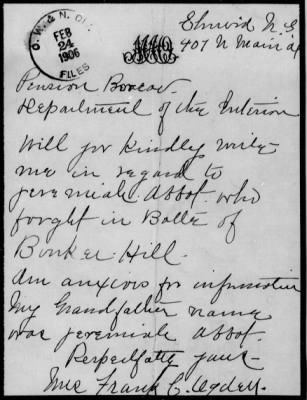 O. W. & N. DIV.
FEB
24
1906
FILES
N.
407 N Main st
Pension Bureau.
Department of the Interior
Will you kindly write
me in regard to
Jeremiah Abbot. who
fought in Battle of
Bunker Hill.
Am anxious for information
My Grandfather name
was Jeremiah Abbot.
Respectfully yours
Mrs Frank C. Ogden.